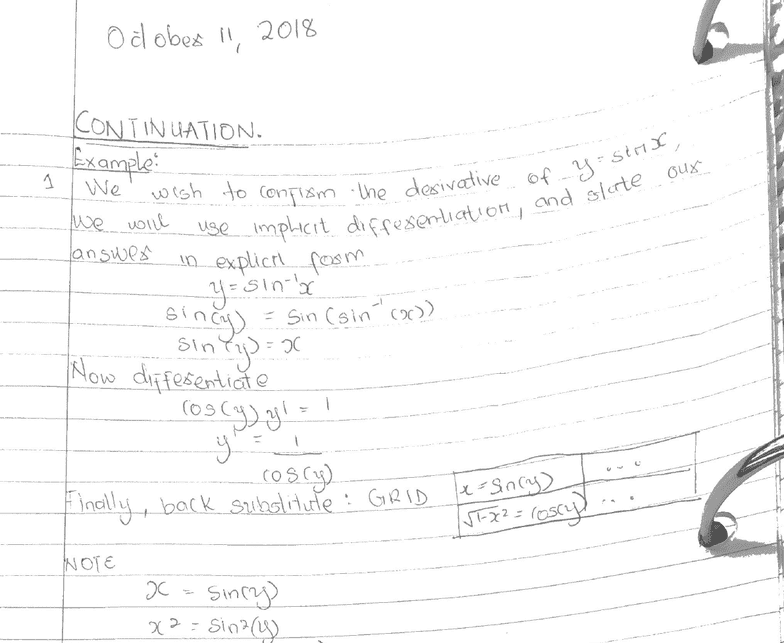 October 11, 2018
CONTINUATION.
Example:
1 We wish to confirm the derivative of y = sin x,
We will use implicit differentiation, and state our
answer in explicit form
y = sin⁻¹x
sin(y) = sin(sin⁻¹(x))
sin(y) = x
Now differentiate
cos(y) y' = 1
y' = 1
cos(y)
Finally, back substitute : GRID
x = sin(y) ...
√1-x² = cos(y) ...
NOTE
x = sin(y)
x² = sin²(y)